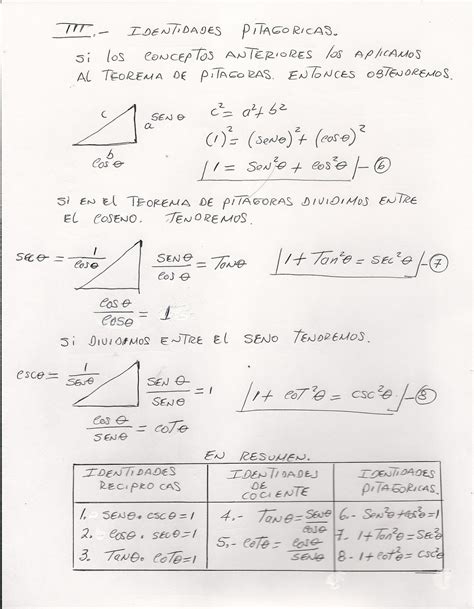 III.- IDENTIDADES PITAGORICAS.
Si los CONCEPTOS ANTERIORES los APLICAMOS
AL TEOREMA DE PITAGORAS. ENTONCES OBTENDREMOS.
c a SENθ c² = a² + b²
b (1)² = (senθ)² + (cosθ)²
cosθ 1 = Sen²θ + cos²θ - 6
Si EN EL TEOREMA DE PITAGORAS DIVIDIMOS ENTRE
EL COSENO. TENDREMOS.
SECθ = 1/cosθ SENθ/cosθ = Tanθ 1 + Tan²θ = SEC²θ - 7
cosθ/cosθ = 1
Si DIVIDIMOS ENTRE EL SENO TENDREMOS.
cscθ = 1/SENθ SENθ/SENθ = 1 1 + coT²θ = csc²θ. - 8
cosθ/SENθ = coTθ
EN RESUMEN.
IDENTIDADES RECIPROCAS IDENTIDADES DE COCIENTE IDENTIDADES PITAGORICAS.
1.- SENθ. cscθ = 1 4.- TANθ = SENθ/cosθ 6.- Sen²θ + cos²θ = 1
2. cosθ. secθ = 1 5.- coTθ = cosθ/SENθ 7.- 1 + Tan²θ = Sec²θ
3. TANθ. coTθ = 1 8.- 1 + coT²θ = csc²θ